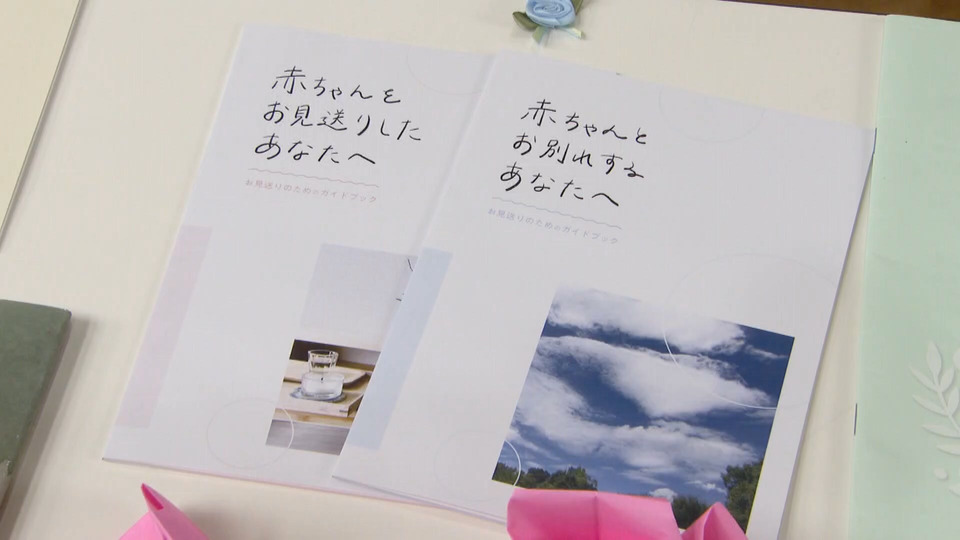 赤ちゃんを
お見送りした
あなたへ
お見送りのためのガイドブック
赤ちゃんと
お別れする
あなたへ
お見送りのためのガイドブック